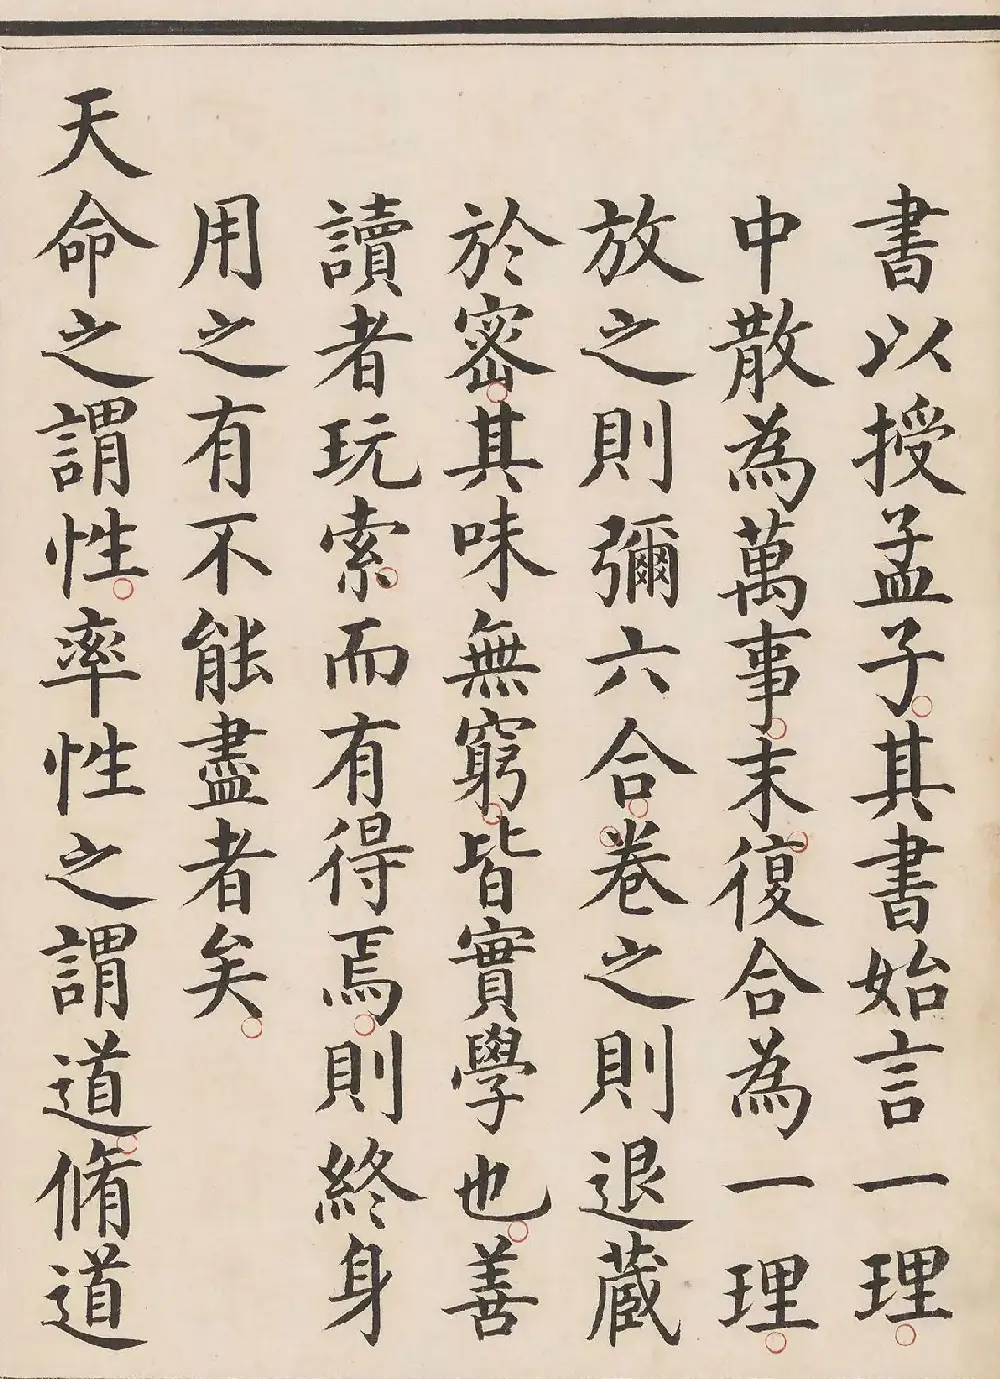 書以授孟子其書始言一理
中散為萬事末復合為一理
放之則彌六合卷之則退蔵
於密其味無窮皆實學也善
讀者玩索而有得焉則終身
用之有不能盡者矣
天命之謂性率性之謂道脩道